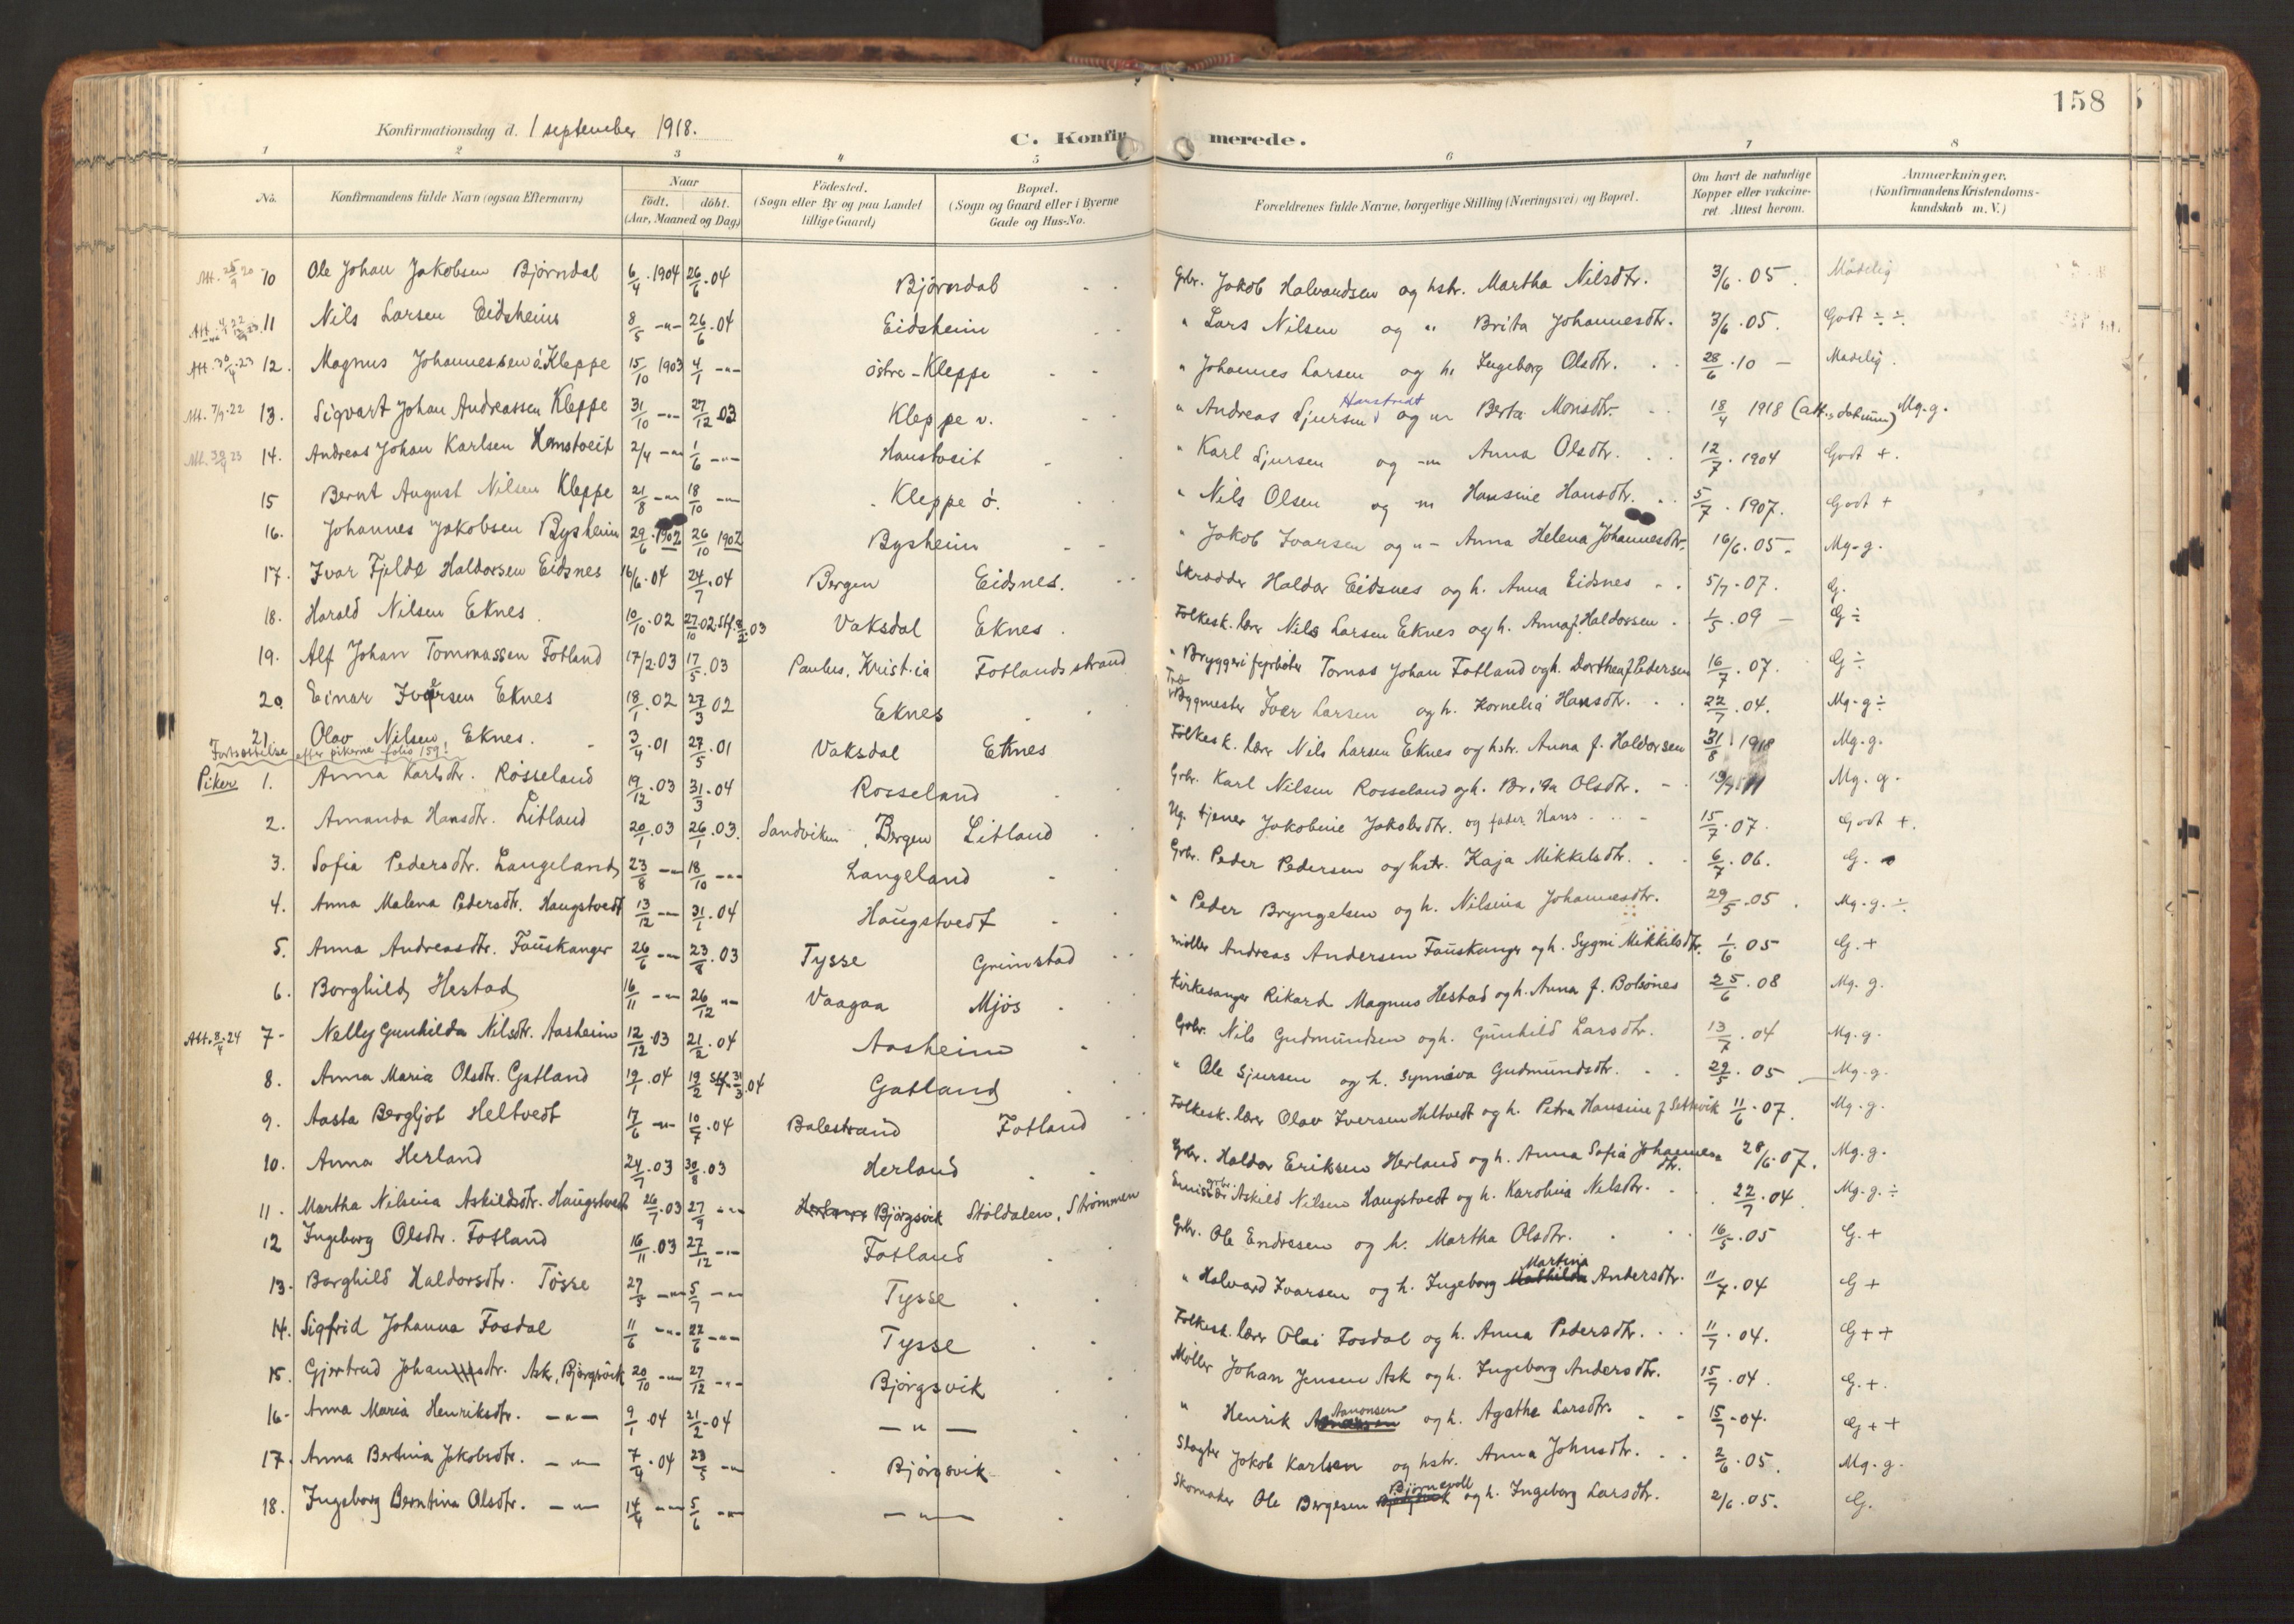 158
Konfirmationsdag d. 1 september 1918.
C. Konfirmerede.
1 2 3 4 5 6 7 8
No. Konfirmandens fulde Navn (ogsaa Efternavn) Naar født. døbt. (Aar, Maaned og Dag) Födested. (Sogn eller By og paa Landet tillige Gaard) Bopæl. (Sogn og Gaard eller i Byerne Gade og Hus-No. Forældrenes fulde Navne, borgerlige Stilling (Næringsvei) og Bopæl. Om havt de naturlige Kopper eller vaccineret. Attest herom. Anmærkninger. (Konfirmandens Kristendomskundskab m. V.)
10 Ole Johan Jakobsen Bjørndal 6/4 1904 26/6 04 Bjørndal Gbr. Jakob Halvardsen og hstr. Martha Nilsdtr. 3/6 05. Mådelig
11 Nils Larsen Eidsheim 8/5 -"- 26/6 04 Eidsheim " Lars Nilsen og " Brita Johannesdtr. 3/6 05. Godt ÷ ÷
Att. 30/4 23 12. Magnus Johannessen ø. Kleppe 15/10 1903 4/1 -"- østre - Kleppe " Johannes Larsen og h. Ingeborg Olsdtr. 28/6 10 - Madelig.
Att. 7/9 22 13. Sigvart Johan Andreassen Kleppe 31/10 -"- 27/12 03 Kleppe v. " Andreas Sjursen og -"- Berta Monsdtr. 18/4 1918 (att.s datum) Mg. g.
14. Andreas Johan Karlsen Hanstveit 2/4 -"- 1/6 -"- Hanstveit " Karl Sjursen og -"- Anna Olsdtr. 12/7 1904 Godt +.
15 Bernt August Nilsen Kleppe 21/8 -"- 18/10 -"- Kleppe ø. " Nils Olsen og -"- Hansine Hansdtr. 5/7 1907. Godt +
16. Johannes Jakobsen Bysheim 29/6 1902 26/10 1902 Bysheim " Jakob Ivarsen og -"- Anna Helena Johannesdtr. 16/6 05. Mg. g.
17. Ivar Fjelde Haldorsen Eidsnes 16/6 04 24/7 04 Bergen Eidsnes. Skrædder Haldor Eidsnes og h. Anna Eidsnes 5/7 07. G.
18. Harald Nilsen Eknes. 10/10 02 27/10 02. Stf. 8/2 03 Vaksdal Eknes. Folkesk. lærer Nils Larsen Eknes og h. Anna f. Haldorsen. 1/5 09 - G ÷
19. Alf Johan Tommassen Fotland 17/2 03 17/5 03 Paulus, Kristia Fotlandsstrand Bryggeri fyrbøter Tomas Johan Fotland og h. Dorthea f. Pedersen 16/7 07. G ÷
20. Einar Iversen Eknes 18/1 02 27/3 02 Eknes Bygmester Iver Larsen og h. Kornelia Hansdtr. 22/7 04. Mg. g ÷
21. Olav Nilsen Eknes. 3/4 01 27/5 01 Vaksdal Eknes Folkesk. lærer Nils Larsen Eknes og hstr. Anna f. Haldorsen 31/8 1918 Mg. g.
Fortsættelse efter pikerne folio 159!
Piker 1. Anna Karlsdtr. Rosseland 19/12 03 31/3 04 Rosseland Gbr. Karl Nilsen Rosseland og h. Brita Olsdtr. Mg. g.
2. Amanda Hansdtr. Litland 20/1 03 26/1 03. Sandviken, Bergen Litland Ug. tjener Jakobine Jakobsdtr. og fader Hans 15/7 07. Godt +.
3. Sofia Pedersdtr. Langeland 23/8 -"- 18/10 -"- Langeland Gbr. Peder Pedersen og hstr. Kaja Mikkelsdtr. 6/7 06. G.
4. Anna Malena Pedersdtr. Haugstvedt 13/12 -"- 31/1 04 Haugstvedt " Peder Bryngelsen og h. Nilsina Johannesdtr. 29/5 05. Mg. g. ÷
5. Anna Andreasdtr. Fauskanger 26/6 -"- 23/8 03 Tysse Grimstad møller Andreas Andersen Fauskanger og h. Sygni Mikkelsdtr. 1/6 05 G. +
6. Borghild Hestad 16/11 -"- 26/12 -"- Vaagaa Mjøs Kirkesanger Rikard Magnus Hestad og h. Anna f. Bolsønes 25/6 08 Mg. g.
Att. 8/4 24 7. Nelly Gunhilda Nilsdtr. Aasheim 12/12 03 21/2 04 Aasheim Gbr. Nils Gudmundsen og h. Gunhild Larsdtr. 13/7 04 Mg. g.
8. Anna Maria Olsdtr. Gatland 19/1 04 19/2 Stf. 31/3 04 Gatland " Ole Sjursen og h. Synnøva Gudmundsdtr. 29/5 05 Mg. g.
9. Aasta Bergljot Heltvedt 17/6 -"- 10/7 04 Balestrand Fotland Folkesk. lærer Olav Iversen Heltvedt og h. Petra Hansine f. Settevik 11/6 07. Mg. g.
10. Anna Herland 24/7 03 30/8 03 Herland Gbr. Haldor Eriksen Herland og h. Anna Sofia Johannesdtr. 28/6 07. Mg. g.
11. Martha Nilsina Askildsdtr. Haugstvedt 26/7 03 27/9 -"- Bjørgsvik Støldalen, Strømmen Emissær gbr. Askild Nilsen Haugstvedt og h. Karolina Nilsdtr. 22/7 04. Mg. g. ÷
12 Ingeborg Olsdtr. Fotland 16/11 03 27/12 -"- Fotland Gbr. Ole Endresen og h. Martha Olsdtr. 16/5 05 G. +
13. Borghild Haldorsdtr. Tøsse 27/5 -"- 5/7 -"- Tysse " Halvard Ivarsen og h. Ingeborg Martina Andersdtr. 11/7 04 G +
14. Sigfrid Johanna Fosdal 11/6 -"- 22/6 -"- Tysse Folkesk. lærer Olai Fosdal og h. Anna Pedersdtr. 11/7 04. G + +
15. Gjertrud Johansdtr. Ask, Bjørgsvik 20/10 -"- 27/12 -"- Bjørgsvik Møller Johan Jensen Ask og h. Ingeborg Andersdtr. 15/7 04. G. +.
16. Anna Maria Henriksdtr. -"- 9/1 04 21/2 04 -"- " Henrik Aanonsen og h. Agathe Larsdtr. 15/7 04. G + +
17. Anna Bertina Jakobsdtr. -"- 7/4 04 23/5 -"- Bjørgsvik Slagter Jakob Karlsen og hstr. Anna Johnsdtr. 2/6 05. Mg. g.
18. Ingeborg Berntina Olsdtr. -"- 14/4 -"- 5/6 -"- -"- Skomaker Ole Børgesen Bjørnevoll og h. Ingeborg Larsdtr. 2/6 05. G.